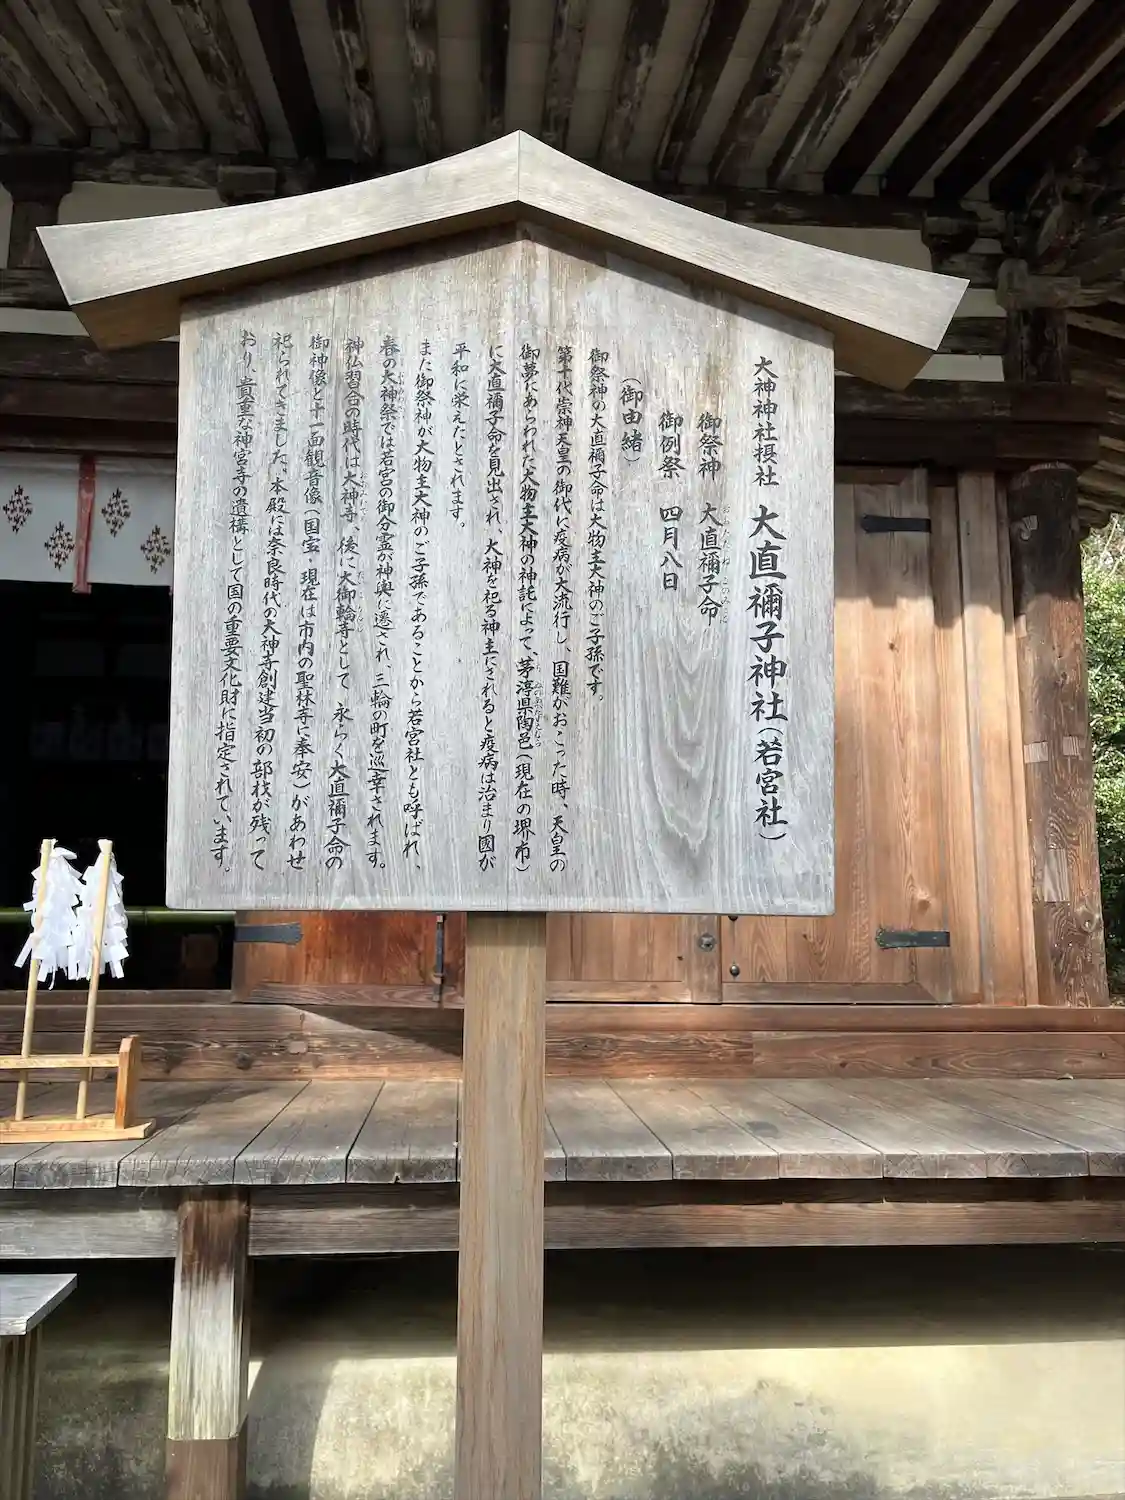 大神神社摂社 大直禰子神社(若宮社)
御祭神 大直禰子命
御例祭 四月八日
(御由緒)
御祭神の大直禰子命は大物主大神のご子孫です。
第十代崇神天皇の御代に疫病が大流行し、国難がおこった時、天皇の
御夢にあらわれた大物主大神の神託によって、茅渟県陶邑(現在の堺市)
に大直禰子命を見出され、大神を祀る神主にされると疫病は治まり國が
平和に栄えたとされます。
また御祭神が大物主大神のご子孫であることから若宮社とも呼ばれ、
春の大神祭では若宮の御分霊が神輿に遷され、三輪の町を巡幸されます。
神仏習合の時代は大神寺、後に大御輪寺として永らく大直禰子命の
御神像と十一面観音像(国宝・現在は市内の聖林寺に奉安)があわせ
祀られてきました。本殿には奈良時代の大神寺創建当初の部材が残って
おり、貴重な神宮寺の遺構として国の重要文化財に指定されています。